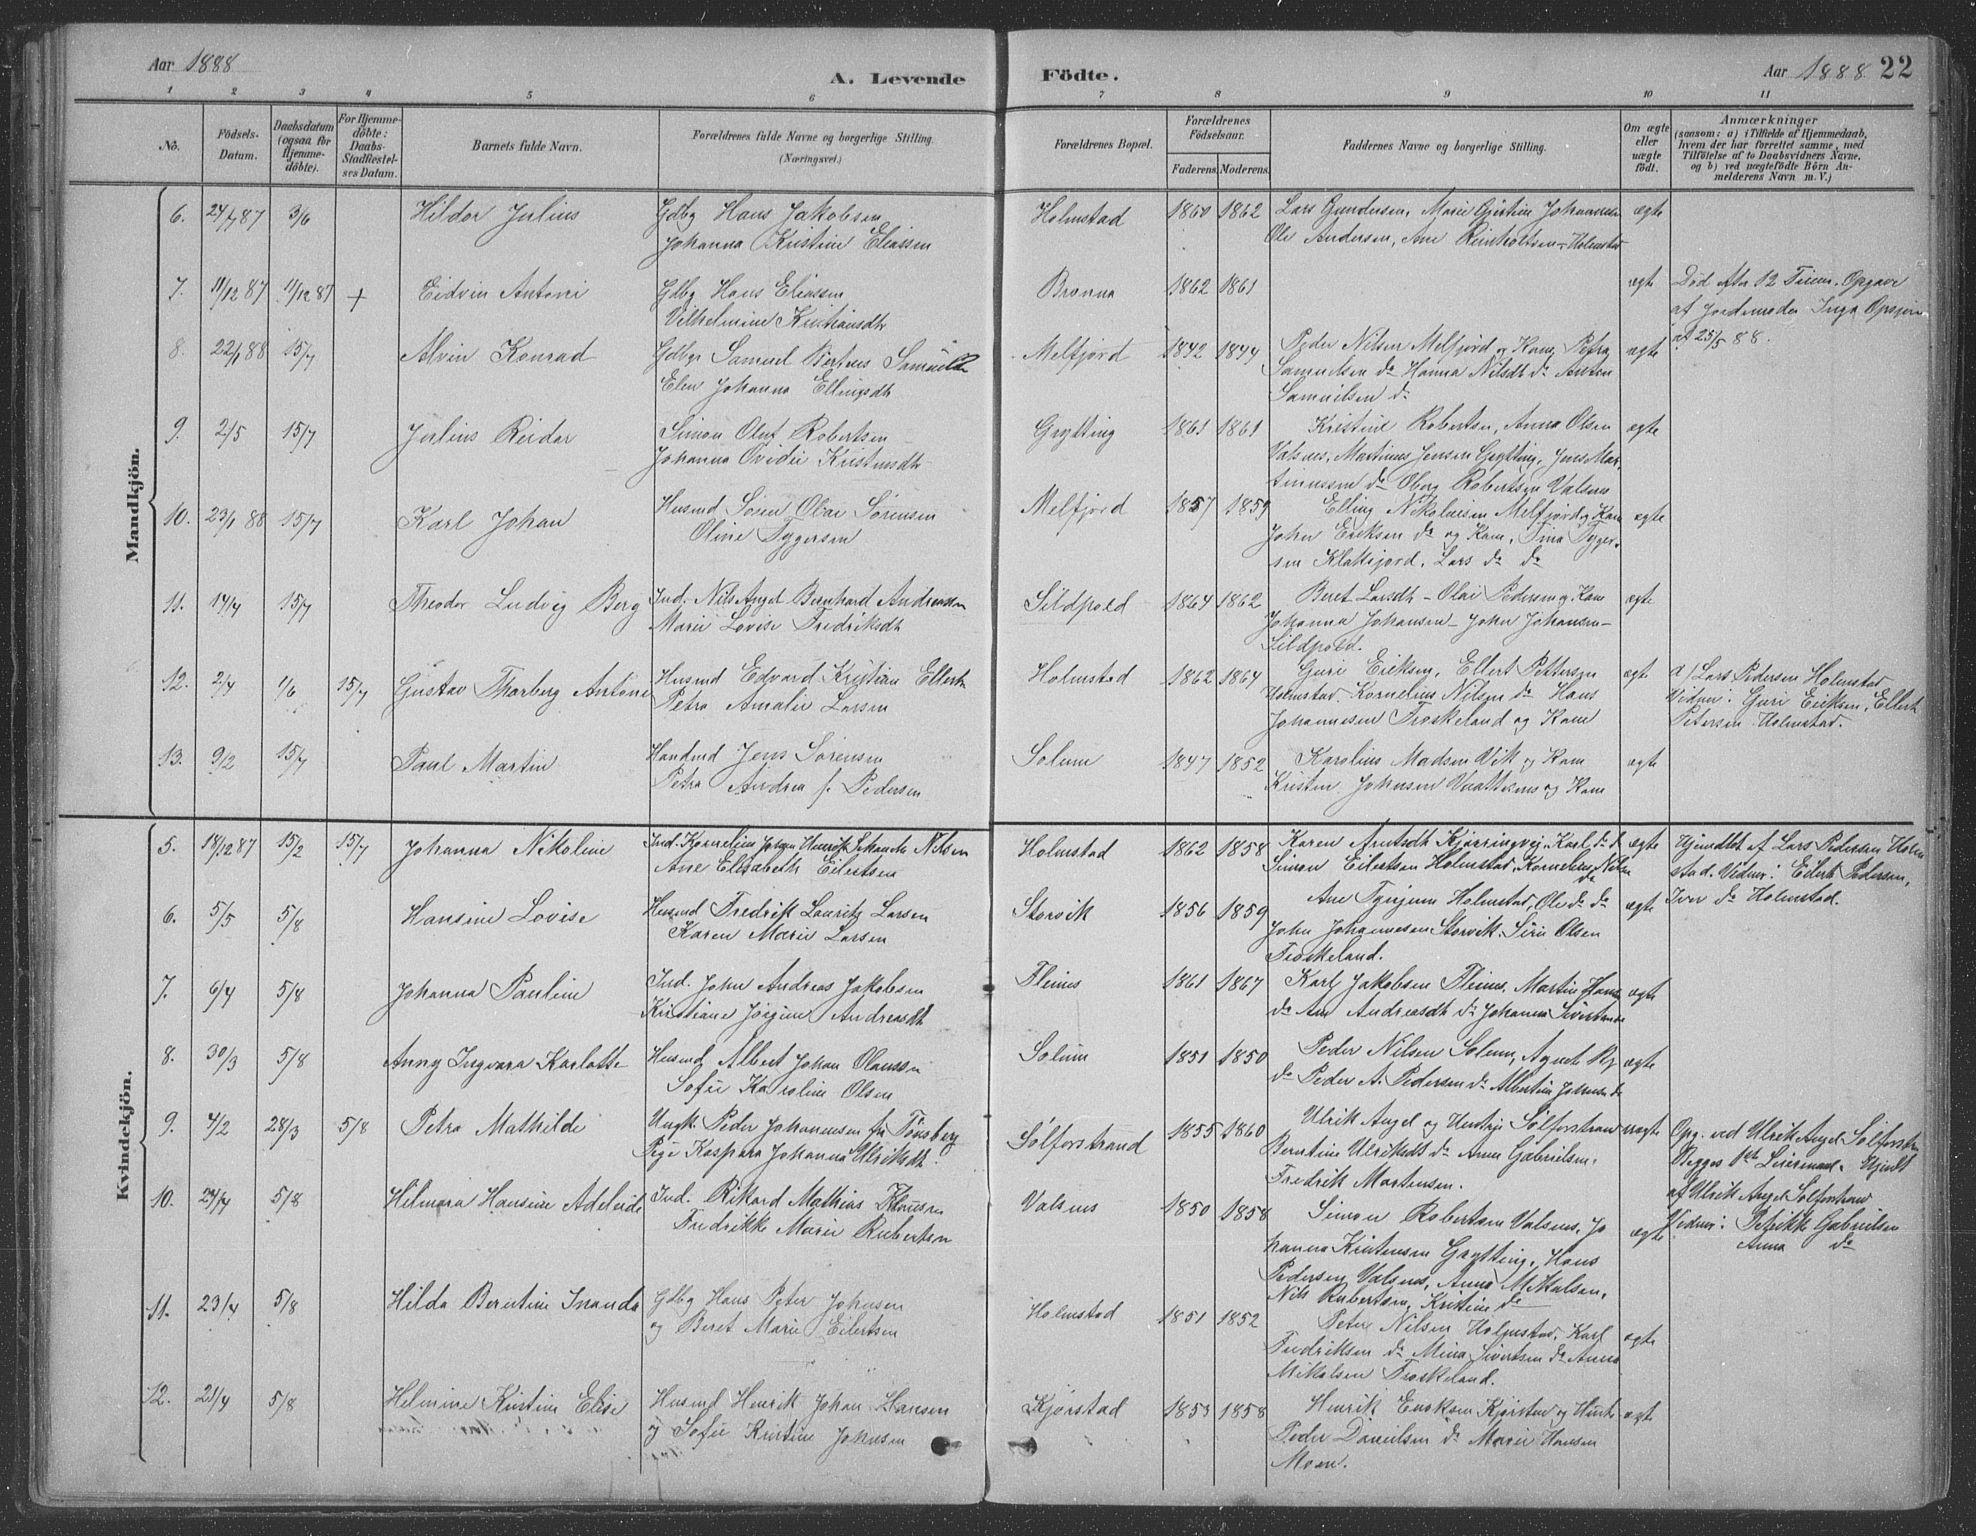 Aar 1888
A. Levende
Födte.
Aar 1888 22
1 2 3 4 5 6 7 8 9 10 11
No.
Födsels-Datum.
Daabsdatum (ogsaa for Hjemmedöbte).
For Hjemmedöbte: Daabs-Stadfæstelses Datum.
Barnets fulde Navn.
Forældrenes fulde Navne og borgerlige Stilling. (Næringsvei.)
Forældrenes Bopæl.
Forældrenes Födselsaar.
Faderens. Moderens.
Faddernes Navne og borgerlige Stilling.
Om ægte eller uægte födt.
Anmærkninger
(saasom: a) i Tilfælde af Hjemmedaab, hvem der har forrettet samme, med Tilföielse af to Daabsvidners Navne, og b) ved uægtefödte Börn Anmelderens Navn m. V.)
Mandkjön.
6. 24/7 87 3/6 Hildor Julius
Gdbg Hans Jakobsen
Johanna Kristine Eliassen
Holmstad 1860 1862
Lars Gundersen, Marie Johannesen
Ole Andersen, Ane Reinholtsen Holmstad
ægte
7. 11/12 87 11/12 87 + Eidvin Antoni
Gdbg Hans Eliassen
Vilhelmine Kristiansdtr
Bronna 1862 1861
ægte
Død efter 12 Timer. Opgave
af Jordemoder Inga
af 25/5 88.
8. 22/1 88 15/7 Alvin Konrad
Gdbgr Samuel Berteus Samuelsen
Elen Johanna Ellingsdtr
Melfjord 1842 1844
Peder Nilsen Melfjord og Kone, Petra
Samuelsen do Hanna Nilsdtr do Anton
Samuelsen do
ægte
9. 2/5 15/7 Julius Reidar
Simon Oluf Robertsen
Johanna Ovidie Kristensdtr
Grytting 1861 1861
Kristine Robertsen, Anna Olsen
Valsnes, Martinus Jensen Grytting, Jens Mar-
tinussen do Oberg Robertsen Valsnes
ægte
10. 23/1 88 15/7 Karl Johan
Husmd Søren Olai Sørensen
Oline Tygersen
Melfjord 1857 1859
Elling Nikolaisen Melfjord og Kone
John Eriksen do og Kone, Tina Tyger-
sen Klaksjord, Lars do do
ægte
11. 14/4 15/7 Theodor Ludvig Berg
Ind. Nils Angel Bernhard Andreassen
Marie Lovise Fredriksdtr
Sildpold 1864 1862
Beret Larsdtr - Olai Pedersen og Kone
Johanna Johansen - John Johansen -
Sildpold.
ægte
12. 2/4 1/6 15/7 Gustav Thorberg Antoni
Husmd Edvard Kristian Ellertsen
Petra Amalie Larsen
Holmstad 1862 1864
Guri Eriksen, Ellert Pettersen
Holmstad. Kornelius Nilsen do Hans
Johannesen Froskeland og Kone
ægte
a) Lars Pedersen Holmstad
Vidner: Guri Eriksen, Ellert
Petersen Holmstad.
13. 9/2 15/7 Paul Martin
Handmd Jens Sørensen
Petra Andrea f. Pedersen
Solum 1847 1852
Karolius Madsen Vik og Kone
Kristen Johnsen og Kone
ægte
Kvindekjön.
5. 18/12 87 15/2 15/7 Johanna Nikoline
Ind. Kornelius Johan Henrik Nilsen
Ane Elisabeth Eilertsen
Holmstad 1862 1858
Karen Arntsdtr Kjørringvig, Karl do do
Simon Eilertsen Holmstad, Kornelius Nilsen do
ægte
Hjemdbt af Lars Pedersen Holm
stad. Vidner: Eilert Pedersen,
Iver do Holmstad.
6. 5/5 5/8 Hansine Lovise
Husmd Fredrik Lauritz Larsen
Karen Marie Larsen
Storvik 1856 1859
Ane Holmstad, Ole do do
John Johannesen Storvik. Siri Olsen
Froskeland.
ægte
7. 6/4 5/8 Johanna Pauline
Ind. John Andreas Jakobsen
Kristiane Jørgine Andreasdtr
Fleines 1861 1867
Karl Jakobsen Fleines, Martin Hansen
do Ane Andreasdtr do Johanna Sivertsen do
ægte
8. 30/3 5/8 Anny Ingvara Karlotte
Husmd Albert Johan Olaussen
Sofie Karoline Olsen
Solum 1851 1850
Peder Nilsen Solum, Agnete
do Peder A. Pedersen do Albertine Johnsen do
ægte
9. 4/2 28/3 5/8 Petra Mathilde
Ungk. Peder Johannesen fra Tönsberg
Pige Kaspara Johanna Ulriksdtr.
Sølforstrand 1855 1860
Ulrik Angel og Hustru Sølforstrand
Berntine Ulriksdtr do Anna Gabrielsen.
Fredrik Mortensen.
uægte
Opg. ved Ulrik Angel Sølforstr.
Begges 1ste Leiermaal. Hjdbt
af Ulrik Angel Sølforstrand
Vidner: Petrikke Gabrielsen
Anna do
10. 24/4 5/8 Hilmara Hansine Adeleide
Ind. Rikard Mathias Klausen
Fredrikke Marie Robertsen
Valsnes 1850 1858
Simon Robertsen Valsnes, Jo
hanna Kristensen Grytting, Hans
Pedersen Valsnes, Anna Mikkalsen,
Nils Robertsen, Kristine do
ægte
11. 23/4 5/8 Hilda Berntine Iranda
Gdbg Hans Peter Johnsen
og Beret Marie Eilertsen
Holmstad 1851 1852
Peter Nilsen Holmstad, Karl
Fredriksen do Mina Sivertsen do Anna
Mikalsen Froskeland.
ægte
12. 21/4 5/8 Helmine Kristine Elise
Husmd Henrik Johan Hansen
og Sofie Kristine Johnsen
Kjørstad 1853 1858
Henrik Eriksen Kjørstad og Hustru
Peder Danielsen do Marie Hansen
Moen.
ægte